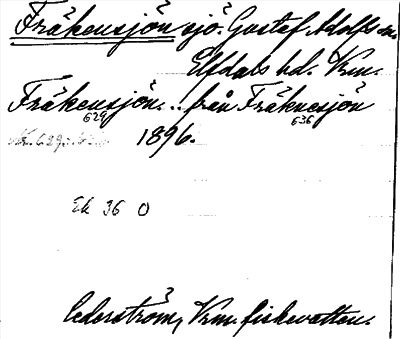 Fräkensjön sjö. Gustaf Adolfs sn.
Elfdals hd. Vrm.
Fräkensjön... från Fräknesjön
629 636
1896.
Ek 36 O
Cederström, Vrm. fiskevatten.